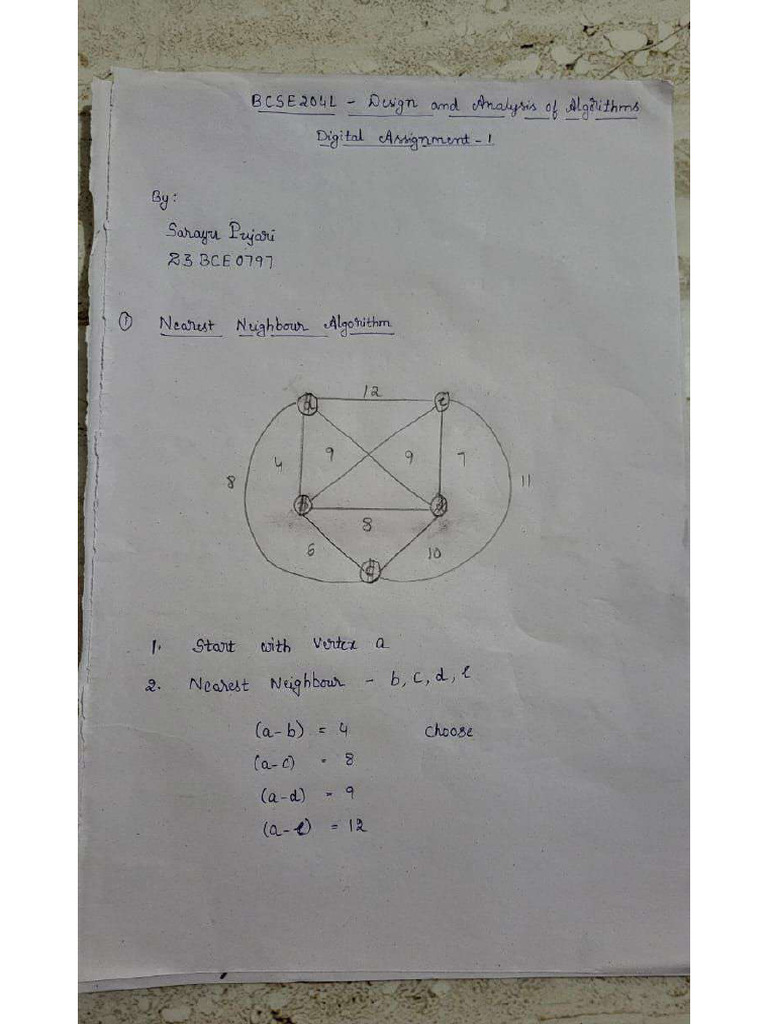 BCSE204L - Design and Analysis of Algorithms
Digital Assignment - 1
By:
Sarayu Pujari
23BCE0797
① Nearest Neighbour Algorithm
12
a e
8 4 9 9 7 11
b d
8
6 10
c
1. Start with Vertex a
2. Nearest Neighbour - b, c, d, e
(a-b) = 4 choose
(a-c) = 8
(a-d) = 9
(a-e) = 12